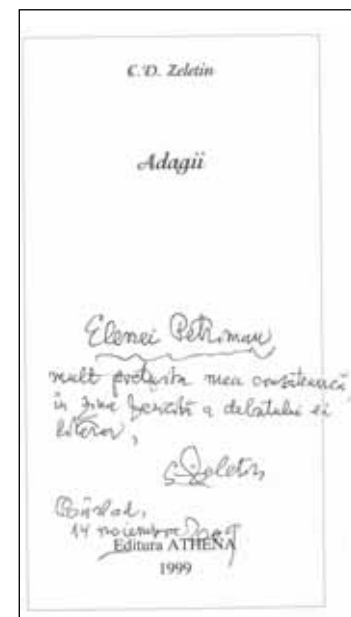 C.D. Zeletin
Adagii
Elenei Petriman
mult mea
în ziua fericită a debutului ei
literar,
CDZeletin
Bârlad,
14 noiembrie 2009
Editura ATHENA
1999